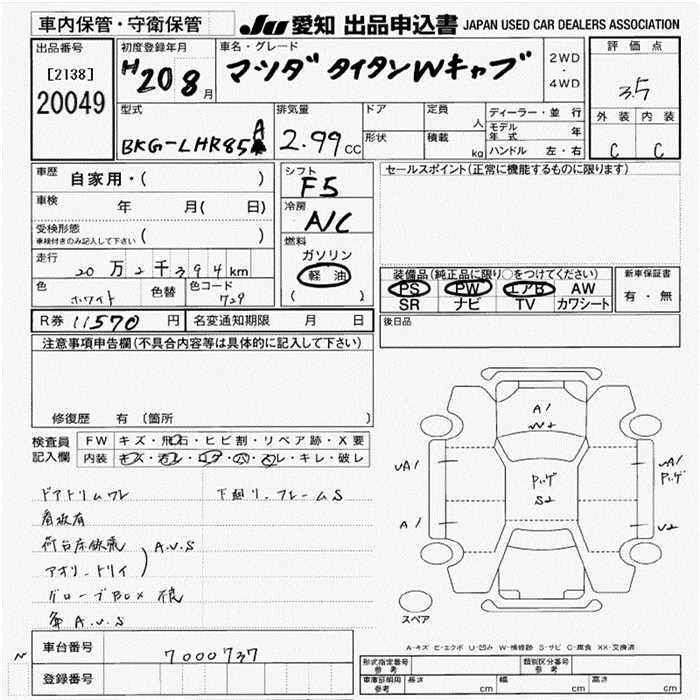 車内保管・守衛保管
JU 愛知 出品申込書 JAPAN USED CAR DEALERS ASSOCIATION
出品番号
[2138]
20049
初度登録年月
H20 8月
車名・グレード
マツダ タイタンWキャブ
2WD
・
4WD
評価点
3.5
外装 内装
C C
型式
BKG-LHR85A
排気量
2.99 CC
ドア
形状
定員 人
積載 kg
ディーラー・並行
モデル年式 年
ハンドル 左・右
車歴 自家用・( )
車検 年 月( 日)
受検形態
車検付きのみ記入して下さい ( )
走行 20万2千394km
色 ホワイト 色替 色コード 729
シフト
F5
冷房
A/C
燃料
ガソリン
軽油
( )
セールスポイント(正常に機能するものに限ります)
装備品(純正品に限り○をつけてください)
PS PW エアB AW
SR ナビ TV カワシート
新車保証書
有・無
R券 11570 円 名変通知期限 月 日
後日品
注意事項申告欄(不具合内容等は具体的に記入して下さい)
修復歴 有 (箇所 )
検査員
記入欄
FW キズ・飛石・ヒビ割・リペア跡・X要
内装 キズ・汚レ・コゲ・穴・スレ・キレ・破レ
ドアトリムワレ 下廻り、フレームS
看板有
荷台床鉄板 A.U.S
アオリ、トリイ
グローブBOX
A.U.S
A1
W2
パッゲ
S2
A1
A1
A1
パッゲ
U2
スペア
A-キズ E-エクボ U-凹み W-補修跡 S-サビ C-腐食 XX-交換済
車台番号 7000737
登録番号
形式指定番号 参考
類別区分番号 参考
車庫証明用 参考 長さ cm 幅 cm 高さ cm